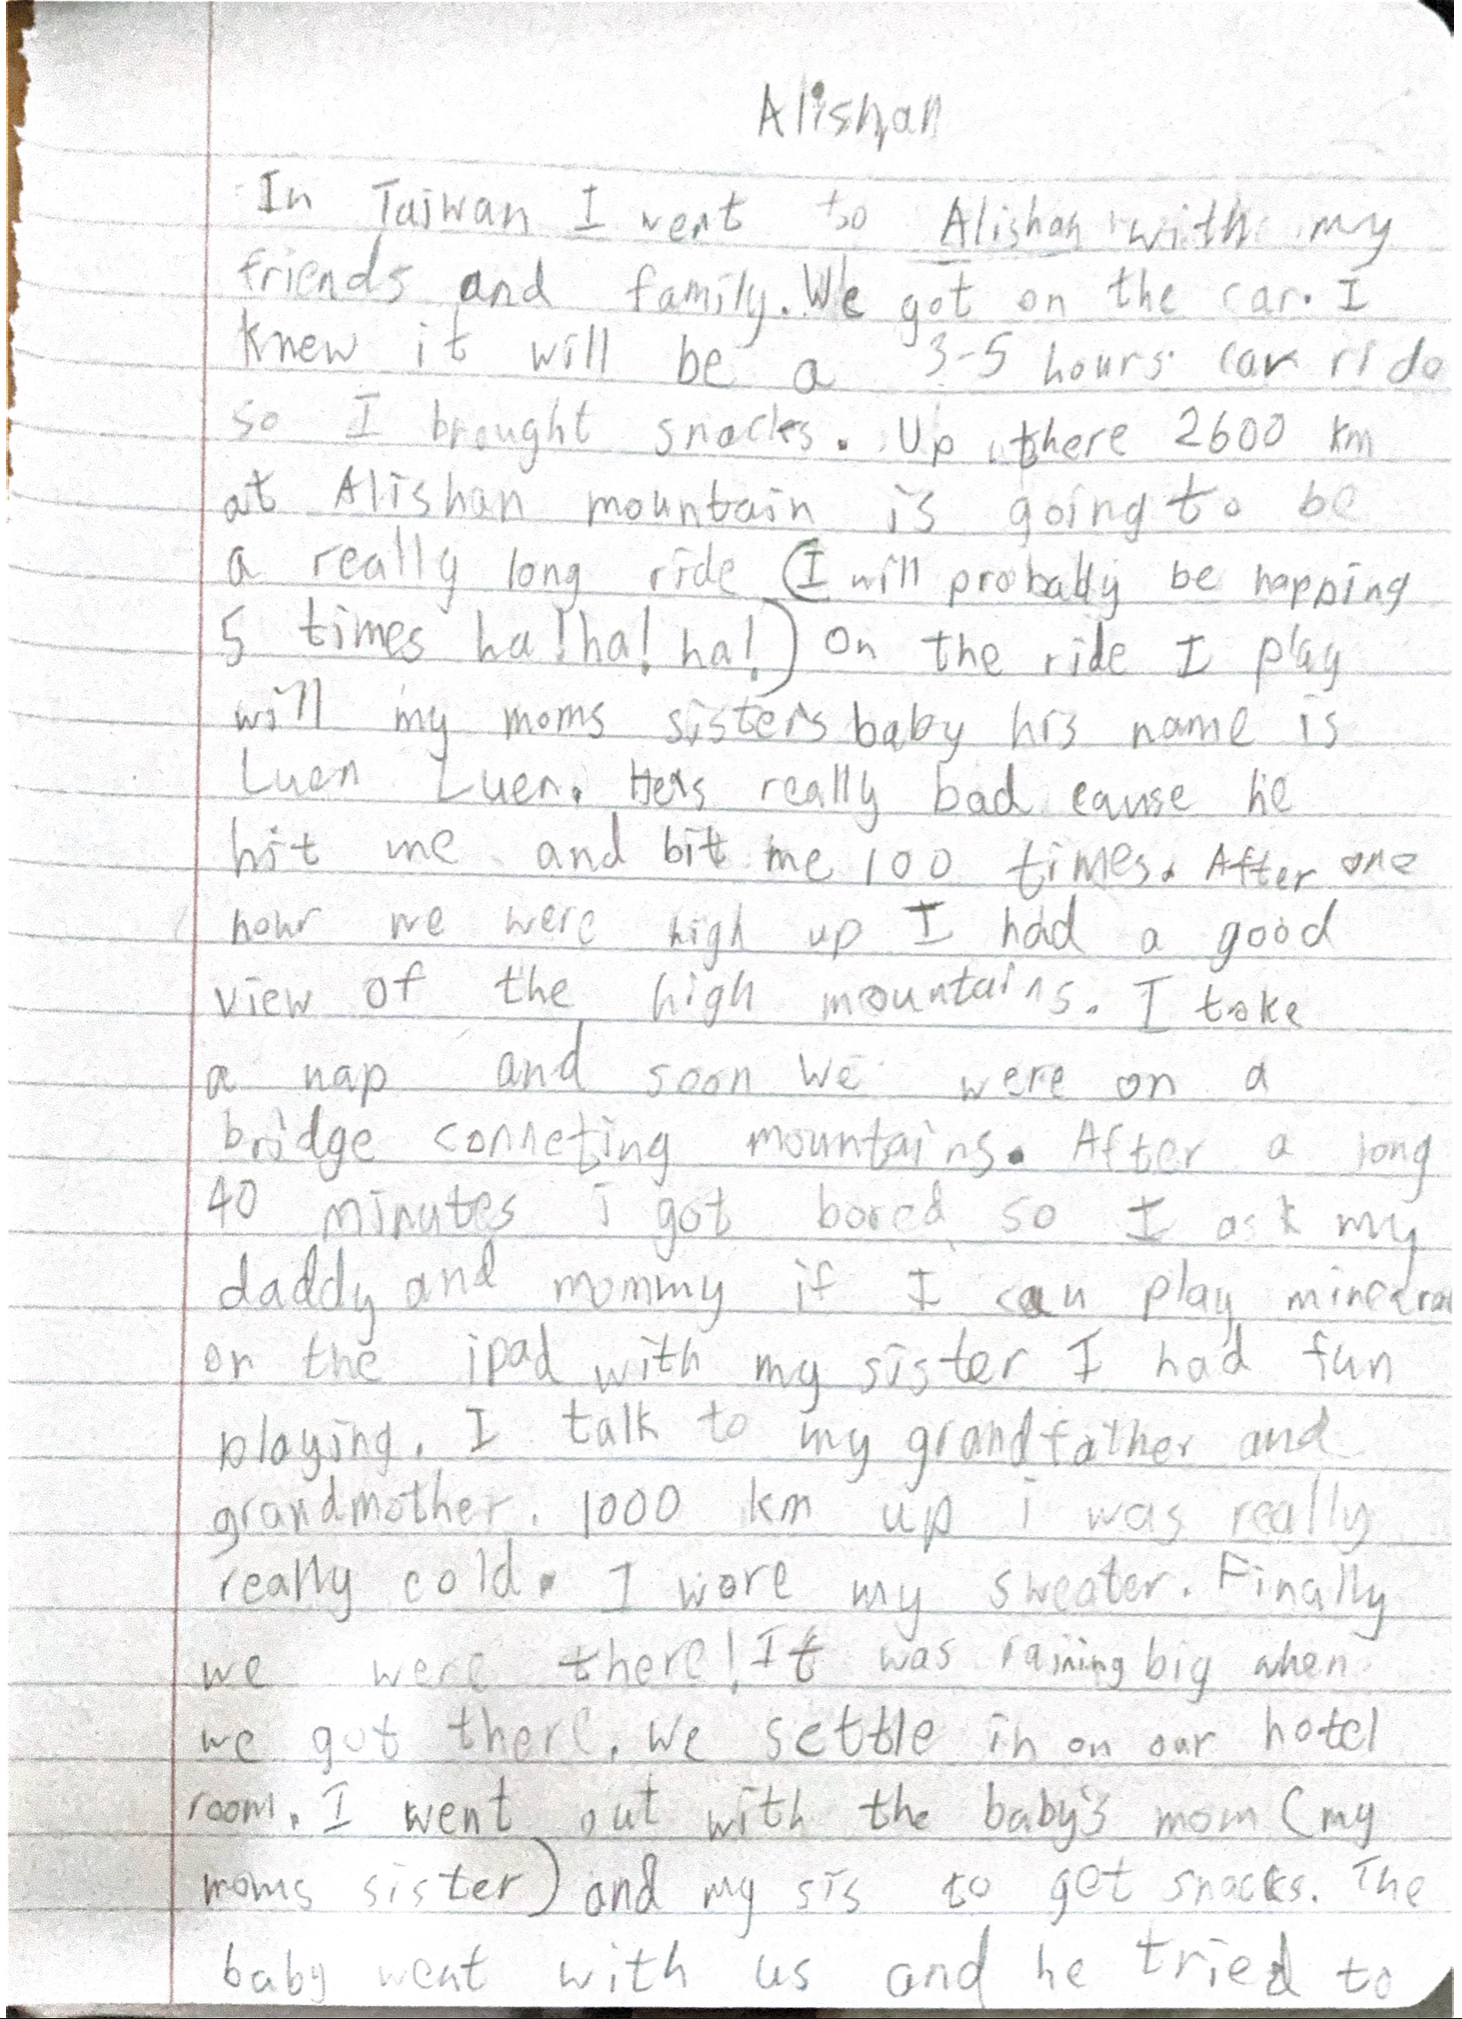 Alishan
In Taiwan I went to Alishan with my
friends and family. We got on the car. I
knew it will be a 3-5 hours car ride
so I brought snacks. Up there 2600 km
at Alishan mountain is going to be
a really long ride (I will probably be napping
5 times ha! ha! ha!) On the ride I play
will my moms sisters baby his name is
Luen Luen. He's really bad cause he
hit me and bit me 100 times. After one
hour we were high up I had a good
view of the high mountains. I take
a nap and soon we were on a
bridge conneting mountains. After a long
40 minutes i got bored so I ask my
daddy and mommy if I can play minecra
on the ipad with my sister I had fun
playing. I talk to my grandfather and
grandmother. 1000 km up i was really
really cold. I wore my sweater. Finally
we were there! It was raining big when
we got there. We settle in on our hotel
room. I went out with the baby's mom (my
moms sister) and my sis to get snacks. The
baby went with us and he tried to